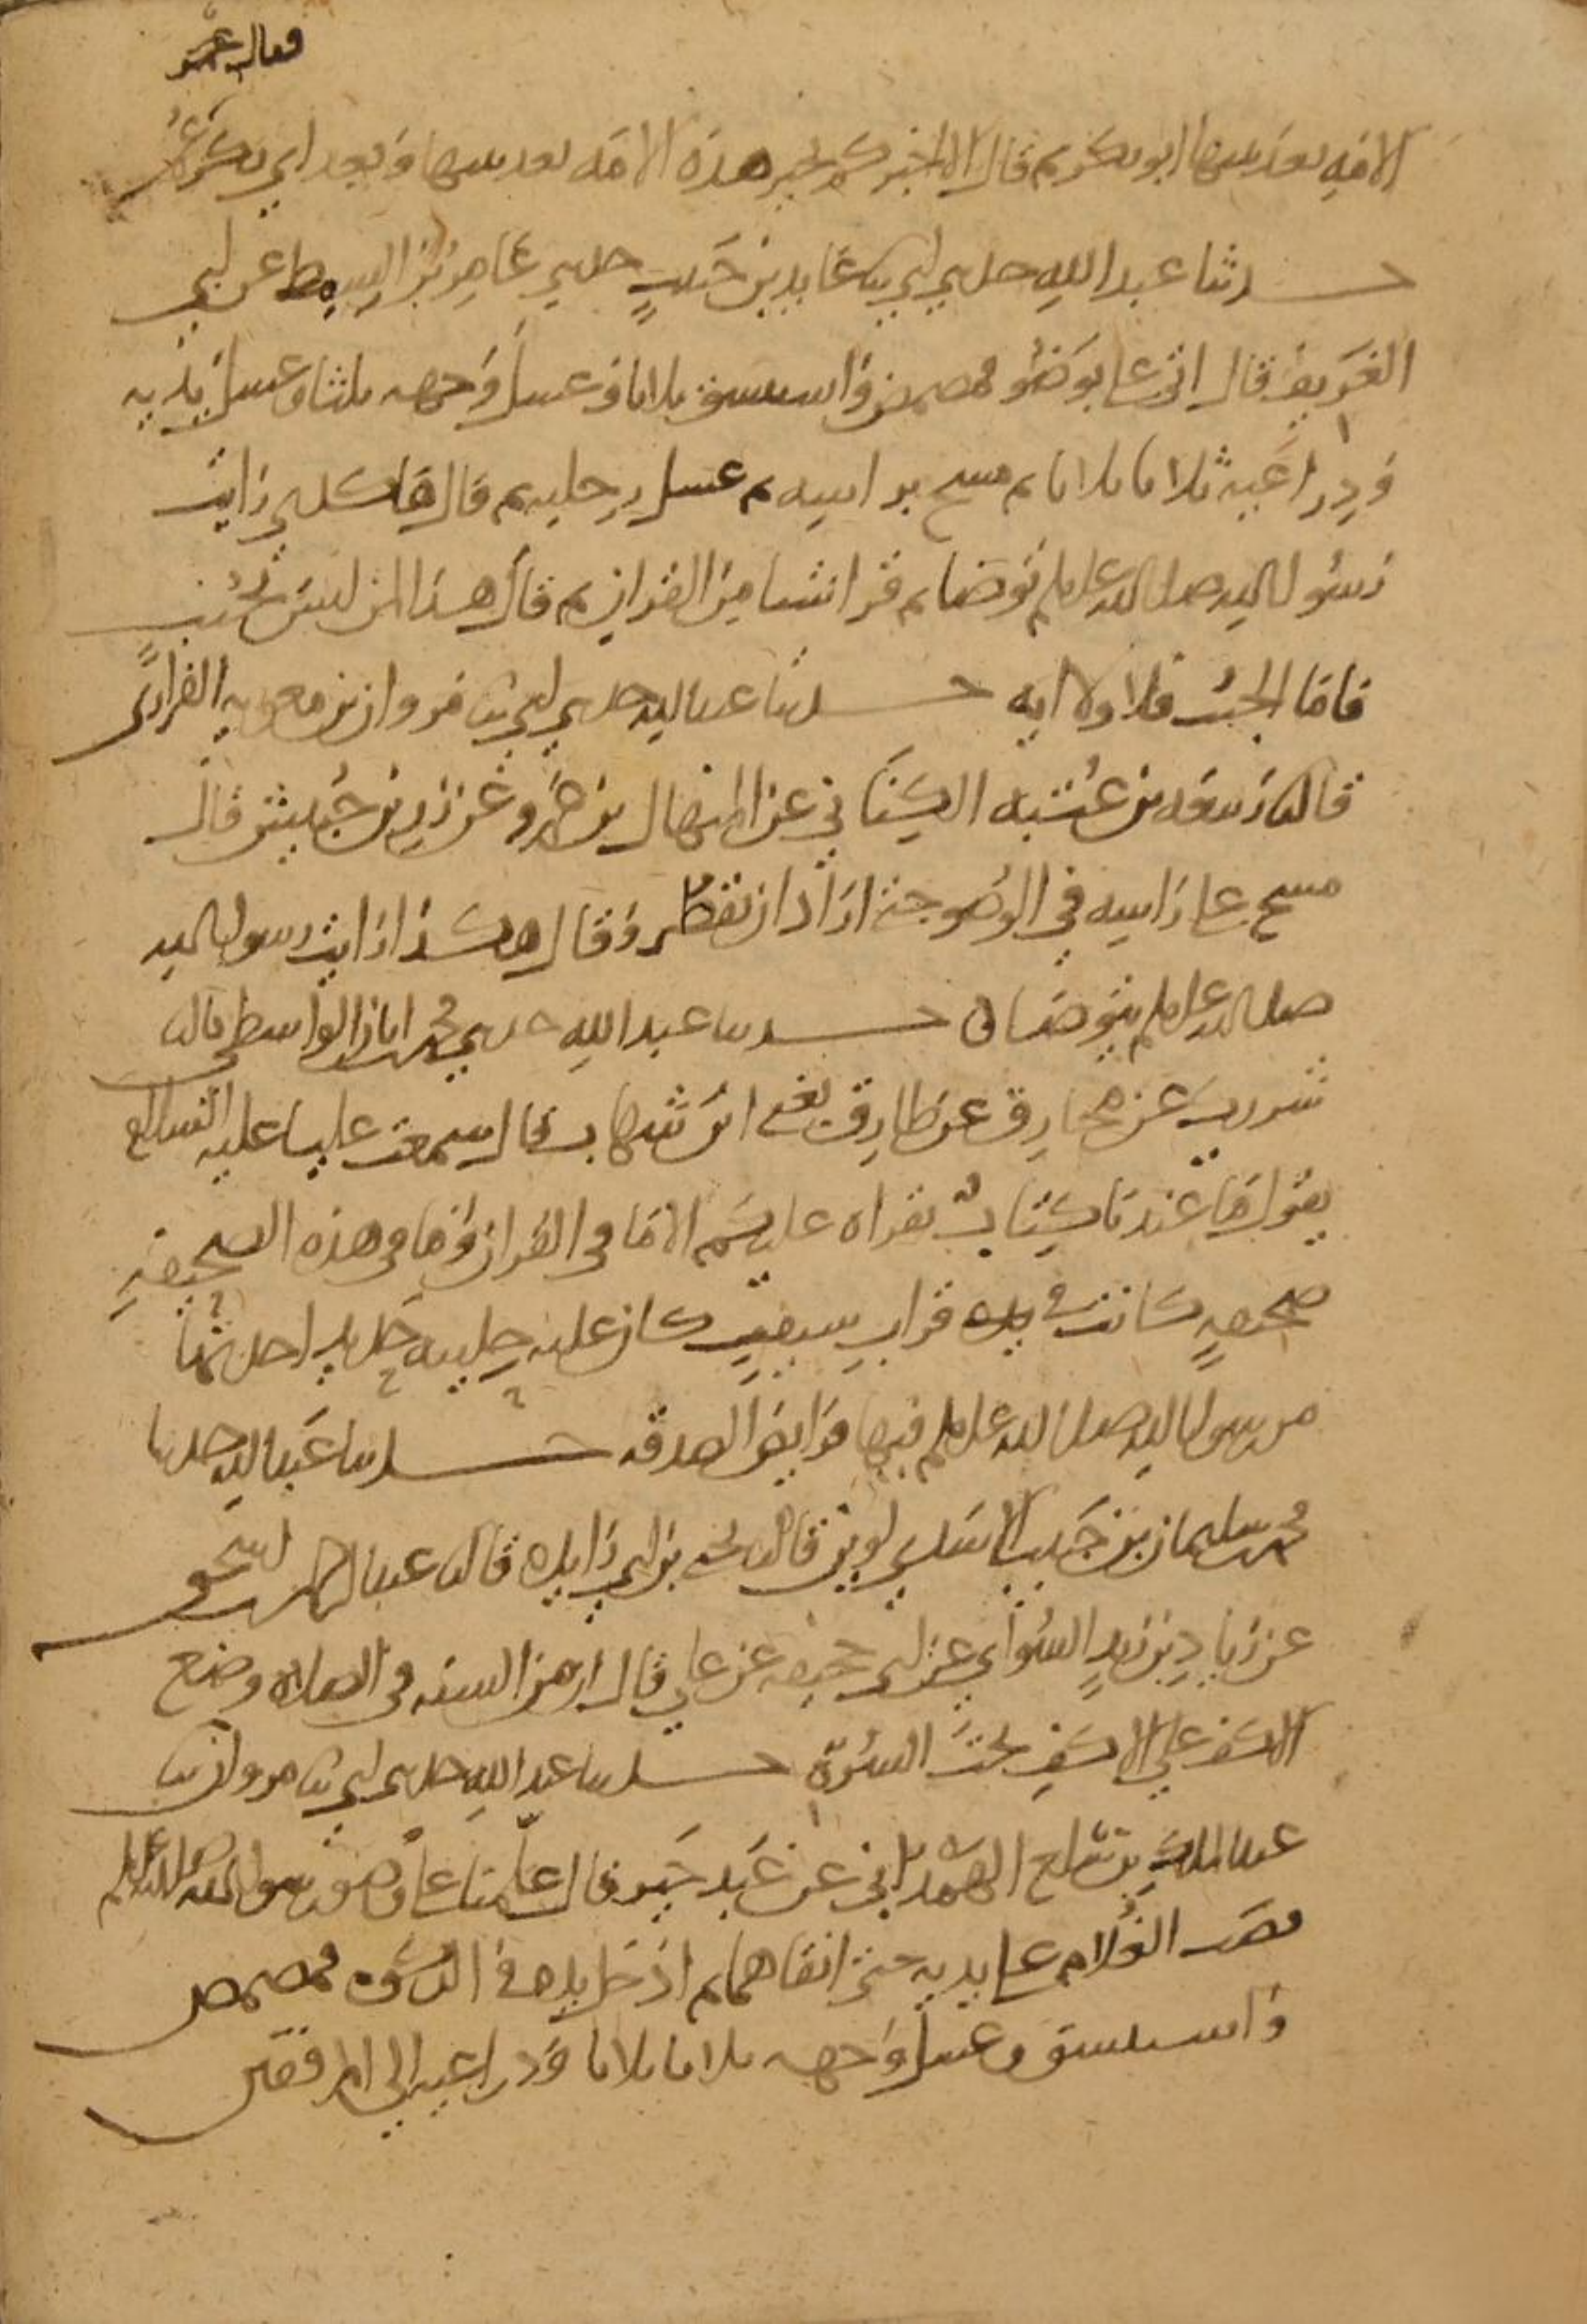 فقال عمر
الامه بعد نبيها ابو بكر ثم قال الا اخبركم بخير هذه الامه بعد نبيها وبعد ابي بكر عمر
حدثنا عبد الله حدثني ابي ثنا عايد بن حبيب حدثني عامر بن السمط عن ابي
الغريف قال اتي علي بوضو فمضمض واستنشق ثلاثا وغسل وجهه ثلثا وغسل يديه
وذراعيه ثلاثا ثلاثا ثم مسح براسه ثم غسل رجليه ثم قال هاكذي رايت
رسول الله صلى الله عليه وسلم توضا ثم قرا شيا من القران ثم قال هذا لمن ليس بجنب
فاما الجنب فلا ولا ايه حدثنا عبد الله حدثني ابي ثنا مروان بن معويه الفزاري
قال ثنا ربيعه بن عتبه الكناني عن المنهال بن عمرو عن زر بن حبيش قال
مسح علي راسه في الوضو حتى اراد ان يقطر وقال هكذا رايت رسول الله
صلى الله عليه وسلم يتوضا حدثنا عبد الله حدثني محمد بن ابان الواسطي قال ثنا
شريك عن مخارق عن طارق يعني ابن شهاب قال سمعت عليا عليه السلام
يقول ما عندنا كتاب نقراه عليكم الا ما في القران وما في هذه الصحيفه
صحيفه كانت في يده قراب سيف كان عليه حليته حديد اخذتها
من رسول الله صلى الله عليه وسلم فيها فرايض الصدقه حدثنا عبد الله حدثنا
محمد بن سليمان بن حبيب الاسدي لوين قال ثنا يحيى بن ابي زايده قال ثنا عبد الرحمن بن اسحق
عن زياد بن زيد السوائي عن ابي جحيفه عن علي قال ان من السنه في الصلاه وضع
الاكف على الاكف تحت السره حدثنا عبد الله حدثني ابي ثنا مروان ثنا
عبد الملك بن سلع الهمداني عن عبد خير قال علمنا علي وضو رسول الله صلى الله عليه وسلم
فصب الغلام على يديه حتى انقاهما ثم ادخل يده في الركوه فمضمض
واستنشق وغسل وجهه ثلاثا ثلاثا وذراعيه الى المرفقين